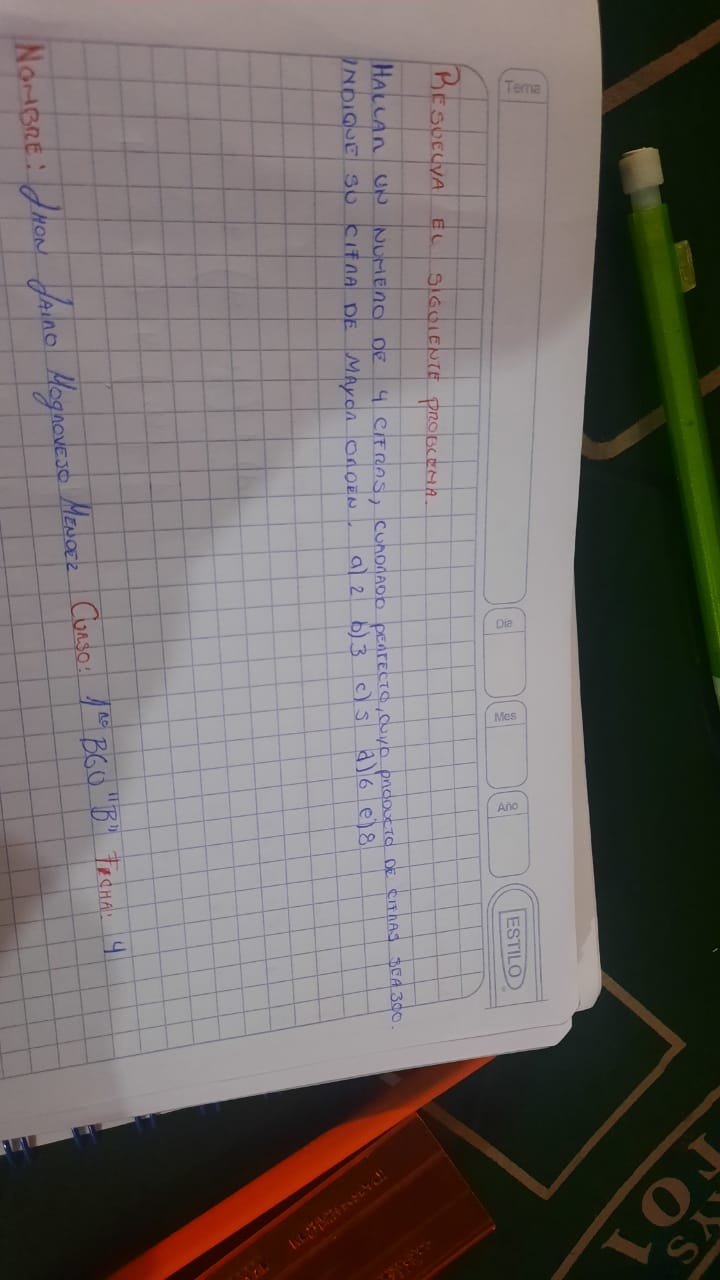 AYS
TO1
Tema
Dia
Mes
Año
ESTILO
RESUELVA EL SIGUIENTE PROBLEMA.
HALLAR UN NUMERO DE 4 CIFRAS, CUADRADO PERFECTO, CUYO PRODUCTO DE CIFRAS SEA 300.
INDIQUE SU CIFRA DE MAYOR ORDEN. a) 2 b) 3 c) 5 d) 6 e) 8
NOMBRE: JHON JAIRO MOGROVEJO MENDEZ CURSO: 1ro BGU "B" FECHA: 4